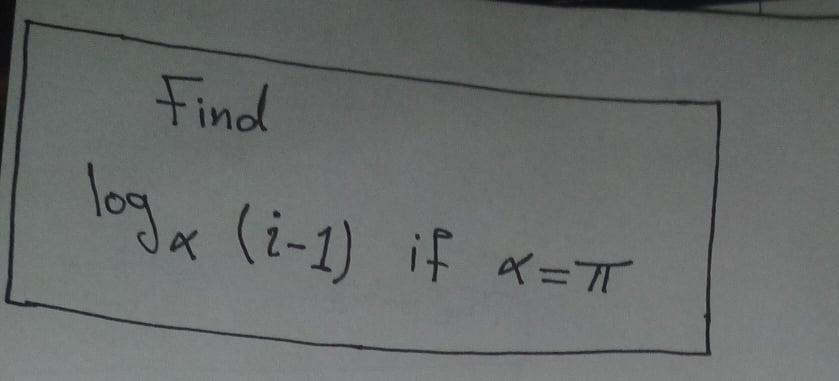 Find
log_α (i-1) if α=π